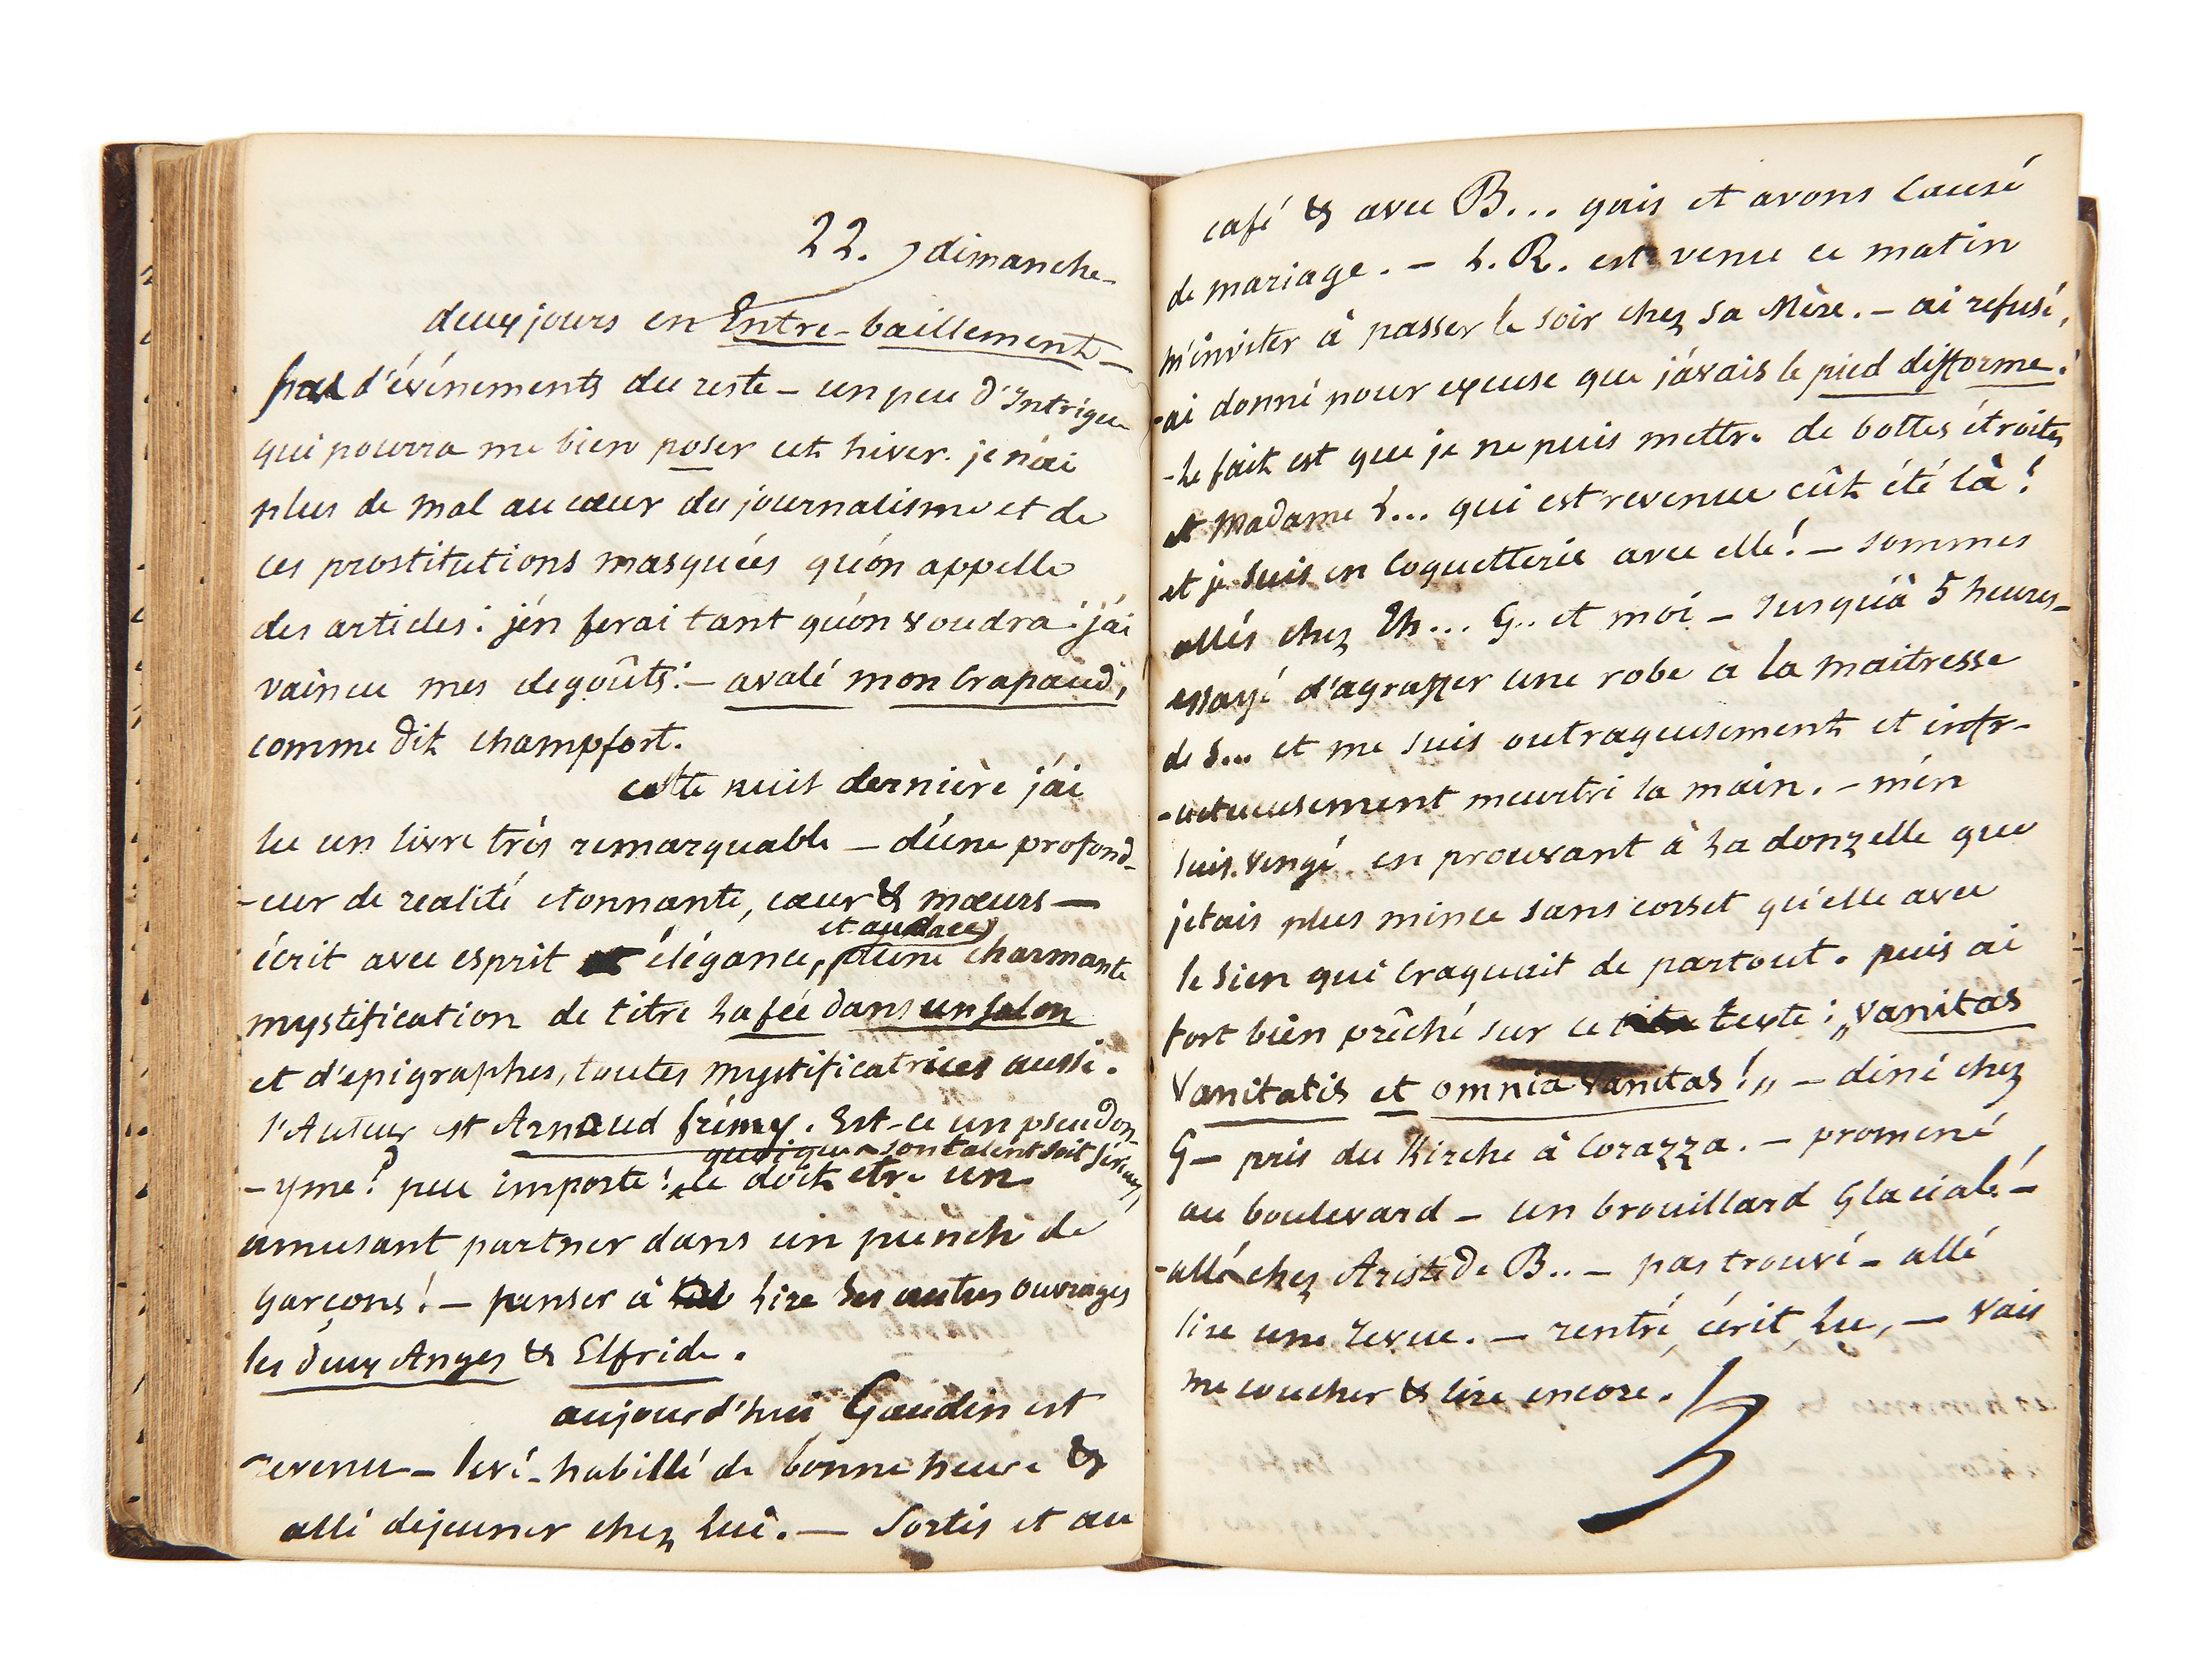 22. dimanche
deux jours en Entre-baillement —
pas d'événements du reste — un peu d'Intrigue
qui pourra me bien poser cet hiver. je n'ai
plus de mal au cœur du journalisme et de
ces prostitutions masquées qu'on appelle
des articles : j'en ferai tant qu'on voudra : j'ai
vaincu mes degoûts : — avalé mon Crapaud,
comme dit champfort.
cette nuit dernière j'ai
lu un livre très remarquable — d'une profond-
-eur de realité etonnante, cœur & mœurs —
et audace,
écrit avec esprit élégance, d'une charmante
mystification de titre La fée dans un salon
et d'epigraphes, toutes mystificatrices aussi.
l'Auteur est Arnaud frémy. Est-ce un pseudon-
quoique son talent soit sérieux,
-yme ? peu importe ! ce doit etre un
amusant partner dans un punch de
Garçons ! — penser à Lire Ses autres ouvrages
les deux Anges & Elfride.
aujourd'hui Gaudin est
revenu — levé — habillé de bonne heure &
allé déjeuner chez Lui. — Sortis et au
café & avec B... gais et avons Causé
de mariage. — L. R. est venu ce matin
m'inviter à passer le soir chez Sa Mère. — ai refusé,
-ai donné pour excuse que j'avais le pied difforme !
-Le fait est que je ne puis mettre de bottes étroites
et Madame L... qui est revenue eût été là !
et je Suis en Coquetterie avec elle ! — sommes
allés chez Th... G.. et moi — Jusqu'à 5 heures —
essayé d'agraffer une robe à La maitresse
de S... et me suis outrageusement et infr-
-uctueusement meurtri la main. — m'en
suis vengé en prouvant à La donzelle que
j'etais plus mince sans corset qu'elle avec
le Sien qui Craquait de partout. puis ai
fort bien prêché sur ce texte : „Vanitas
Vanitatis et omnia Vanitas !„ — diné chez
G — pris du Kirche à Corazza. — promené
au boulevard — un brouillard Glacial ! —
-allé chez Aristide B.. — pas trouvé — allé
lire une revue. — rentré, écrit, Lu, — Vais
me coucher & lire encore.